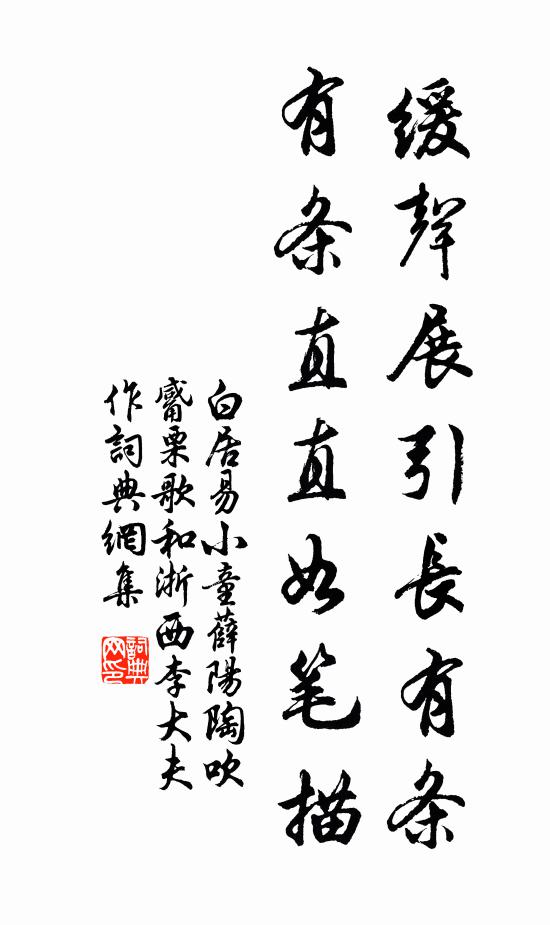 緩聲展引長有条
有条直直如笔描
白居易小童薛陽陶吹
觱栗歌和浙西李大夫
作詞典網集
詞典
网印